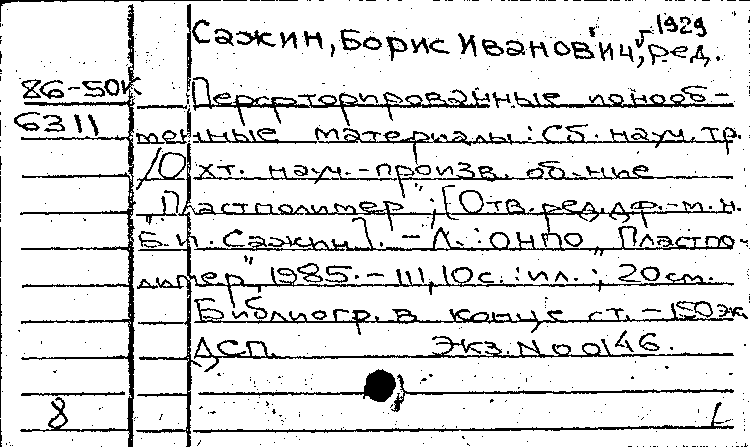 Сажин, Борис Иванович, 1929
ред.
86-50к
Перфторированные ионооб-
6311
менные материалы: Сб. науч. тр.
/Охт. науч.-произв. об-ние
"Пластполимер"; [Отв. ред. д.ф.-м.н.
Б.И. Сажин]. - Л.: ОНПО "Пластпо-
лимер", 1985. - 111, 10с.: ил.; 20см.
Библиогр. в конце ст. - 150 эк
ДСП. Экз. № 00146.
8